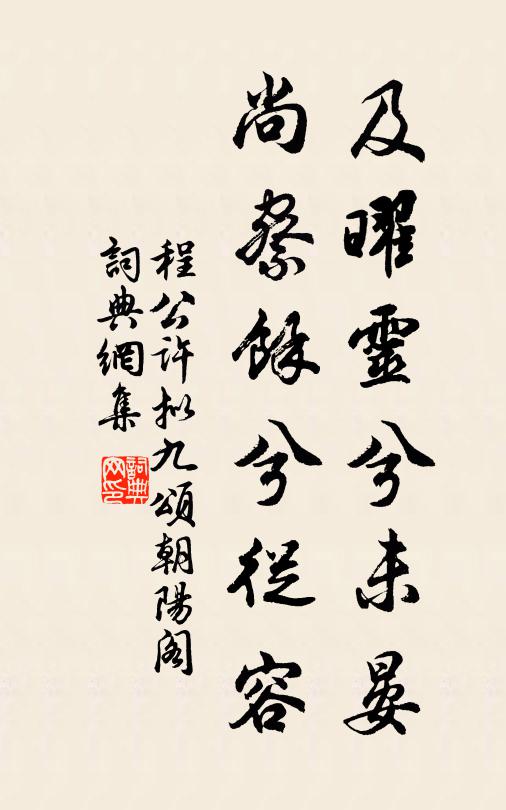 及曜靈兮未晏
尚察餘兮從容
程公許拟九頌朝陽閣
詞典網集
詞典网印